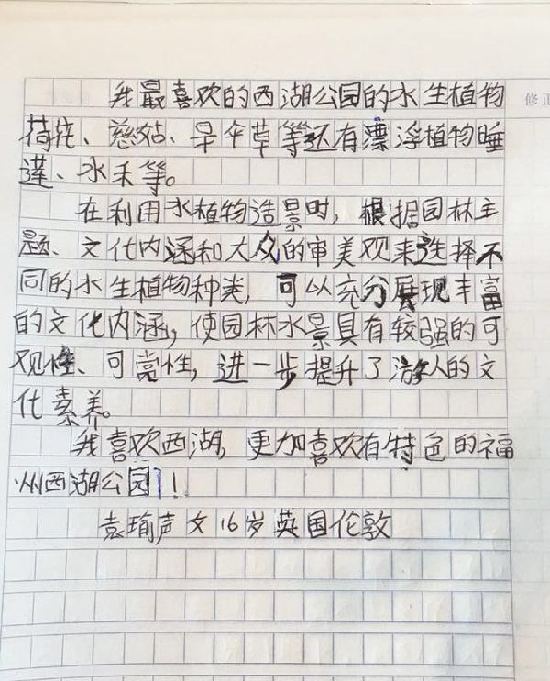 我最喜欢的西湖公园的水生植物
荷花、慈姑、旱伞草等还有漂浮植物睡
莲、水禾等。
在利用水植物造景时，根据园林主
题、文化内涵和大众的审美观来选择不
同的水生植物种类，可以充分展现丰富
的文化内涵，使园林水景具有较强的可
观性、可亮性，进一步提升了游人的文
化素养。
我喜欢西湖，更加喜欢有特色的福
州西湖公园！
袁瑜声文16岁英国伦敦
修正